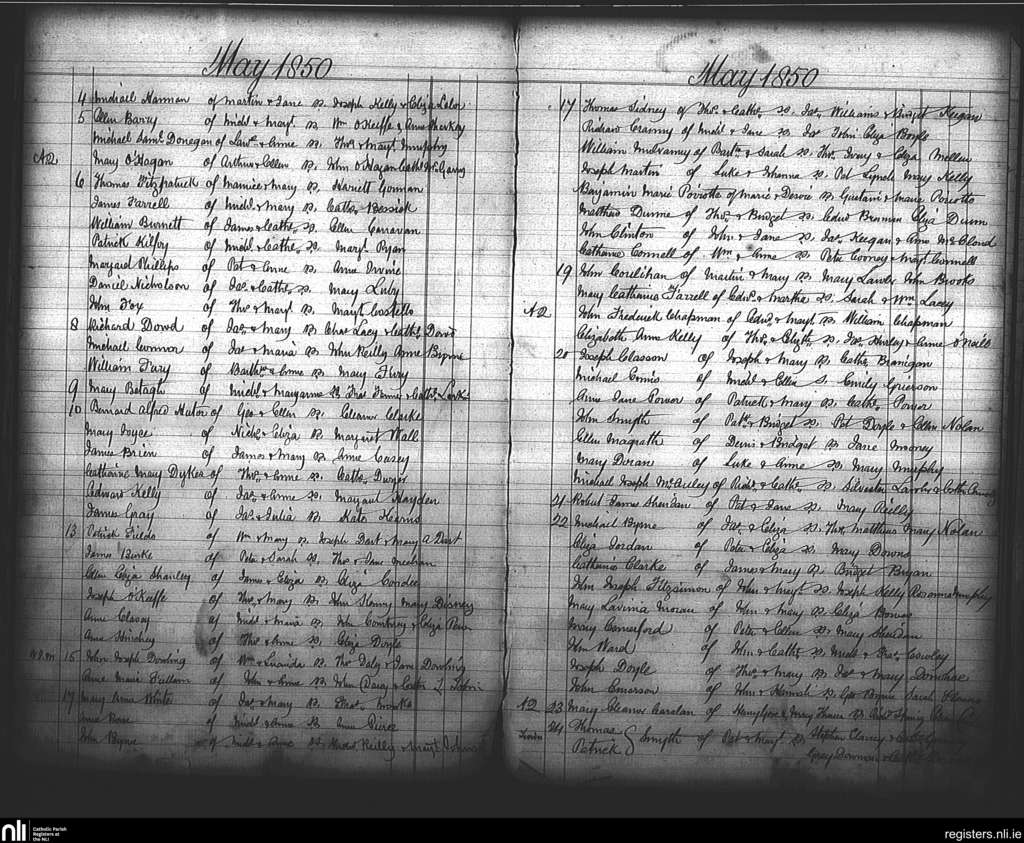 May 1850
4 Michael Hannan of Martin & Jane S. Joseph Kelly & Eliza Lalor
5 Ellen Barry of Michl & Margt S. Wm O'Keiffe & Anne
Michael Saml. Donegan of Lawe. & Anne S. Thos & Margt Murphy
Mary O'Hagan of Arthur & Ellen S. John O'Hagan Cathe
6 Thomas Fitzpatrick of Maurice & Mary S. Harriett Gorman
James Farrell of Michl. & Mary S. Cathe. Bessick
William Burnett of James & Cathe. S. Ellen Carravan
Patrick Kilfoy of Michl. & Cathe. S. Margt. Ryan
Margaret Phillips of Pat & Anne S. Anne Irvine
Daniel Nicholson of Jas. & Cathe. S. Mary Luby
John Fox of Thos & Margt. S. Margt Costello
8 Richard Dowd of Jas. & Mary S. Chas Lacy & Cathe. Dowd
Michael Connor of Jas & Maria S. John Reilly Anne Byrne
William Fury of Barthw. & Anne S. Mary Fury
9 Mary Betagh of Michl. & Maryanne S. & Cathe.
10 Bernard Alfred of Geo & Ellen S. Eleanor Clarke
Mary Joyce of Nichs. & Eliza S. Margaret Wall
James Brien of James & Mary S. Anne Casey
Catharine Mary Dykes of Thos. & Anne S. Cathe. Dwyer
Edward Kelly of Jas. & Anne S. Margaret Hayden
James Gray of Jas. & Julia S. Kate Kerns
13 Patrick Fields of Wm & Mary S. Joseph Dart & Mary A Dart
James Burke of Peter & Sarah S. Thos & Jane Meehan
Ellen Eliza Shanley of James & Eliza S. Eliza Cordee
Joseph O'Keeffe of Thos. & Mary S. John Kenny Mary Disney
Anne Clasay of Michl & Maria S. John Courtney & Eliza
Anne Hinchey of Thos & Anne S. Eliza Doyle
15 John Joseph Dowling of Wm & Lucinda S. Thos Daly & Jane Dowling
Anne Maria Fullam of John & Anne S. John
17 Mary Anne White of Jas. & Mary S.
Anne Rose of Michl & Anne S. Anne
John Byrne of Michl & Anne S. Reilly & Margt
May 1850
17 Thomas Sidney of Thos. & Cathe. S. Jas. Williams & Bridget Keegan
Richard Cranny of Michl & Jane S. Jas Tobin Eliza Boyle
William Mulvanny of Bartw. & Sarah S. Thos. Ivory & Eliza Mellen
Joseph Martin of Luke & Johanna S. Pat Lynch Mary Kelly
Benjamin Marie Poirotte of Marie & Desiré S. Gustave & Marie Poirotte
Matthew Dunne of Thos. & Bridget S. Edwd Brennan Eliza Dunn
John Clinton of John & Jane S. Jas. Keegan & Anne McCloud
Catharine Connell of Wm & Anne S. Peter Cooney & Margt. Connell
19 John Corelihan of Martin & Mary S. Mary Lawler John Brooks
Mary Catharine Farrell of Edwd. & Martha S. Sarah & Wm Lacey
John Frederick Chapman of Edwd. & Margt S. William Chapman
Elizabeth Anne Kelly of Thos. & Elizth S. Jas. Hurley & Anne O'Neill
20 Joseph Classon of Joseph & Mary S. Cathe Branigan
Michael Ennis of Michl & Ellen S. Emily Grierson
Anne Jane Power of Patrick & Mary S. Cathe. Power
John Smyth of Patk & Bridget S. Pat Doyle & Ellen Nolan
Ellen Magrath of Denis & Bridget S. Jane Mooney
Mary Doran of Luke & Anne S. Mary Murphy
Michael Joseph McAuley of Richd. & Cathe. S. Silvester Lawler & Cathe
21 Robert James Sheridan of Pat & Jane S. Mary Reilly
22 Michael Byrne of Jas. & Eliza S. Thos. Matthews Mary Nolan
Eliza Jordan of Peter & Eliza S. Mary Downs
Catharine Clarke of James & Mary S. Bridget Bryan
John Joseph Fitzsimon of John & Margt S. Joseph Kelly Rosanna Murphy
Mary Lavinia Moran of John & Mary S. Eliza
Mary Comerford of Peter & Ellen S. Mary Sheridan
John Ward of John & Cathe S. Michl & Cowley
Joseph Doyle of Thos. & Mary S. Jas & Mary Donohoe
John Emerson of John & Hannah S. Geo Byrne Sarah
23 Mary Eleanor Carolan of & Mary S.
24 Thomas
Patrick } Smyth of Pat & Margt S. Stephen Clancy &
nli Catholic Parish
Registers at
the NLI
registers.nli.ie